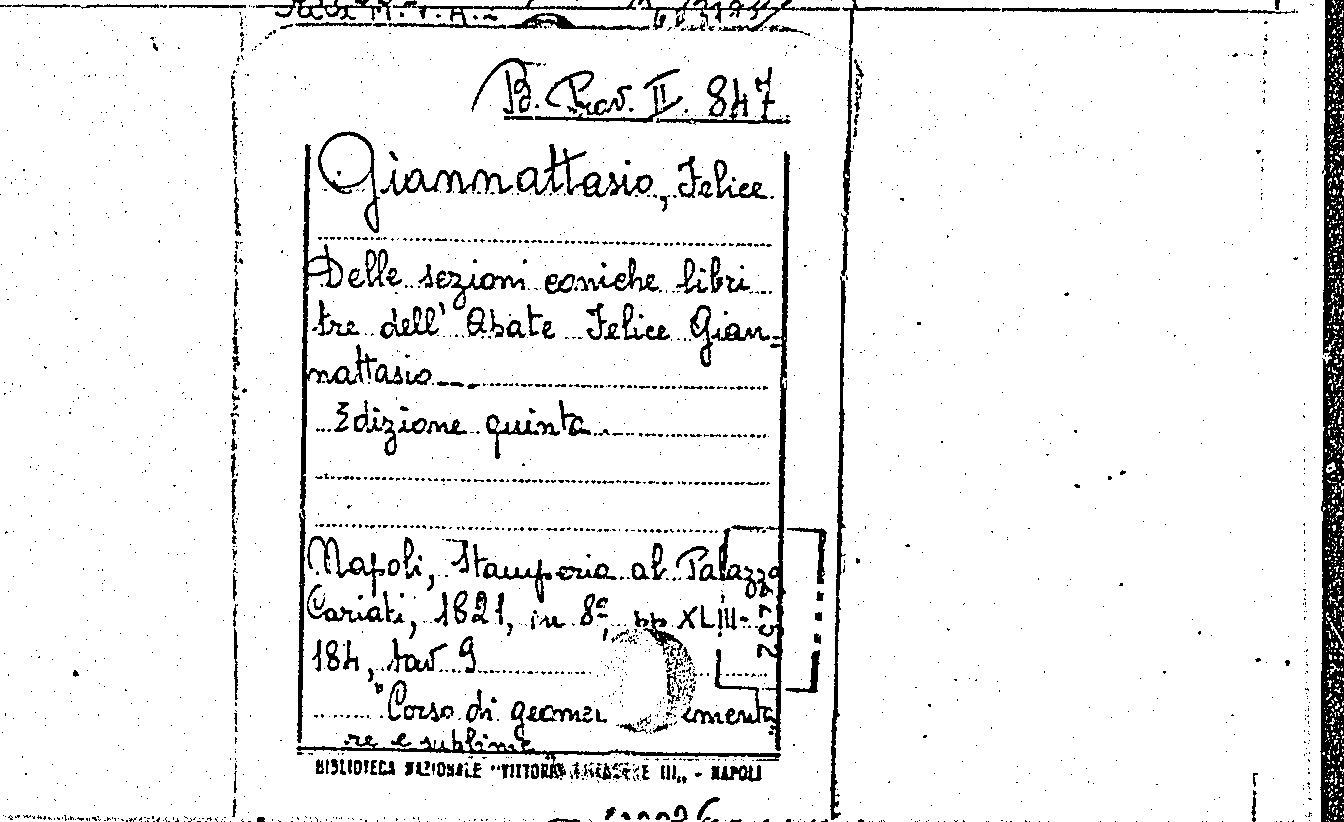 B. Prov. II. 847
Giannattasio, Felice
Delle sezioni coniche libri
tre dell' Abate Felice Gian=
nattasio
Edizione quinta
Napoli, Stamperia al Palazzo
Cariati, 1821, in 8º, pp XLIII-
184, tav 9
"Corso di geome ementa
re e sublime
BIBLIOTECA NAZIONALE "VITTORIO EMANUELE III„ - NAPOLI